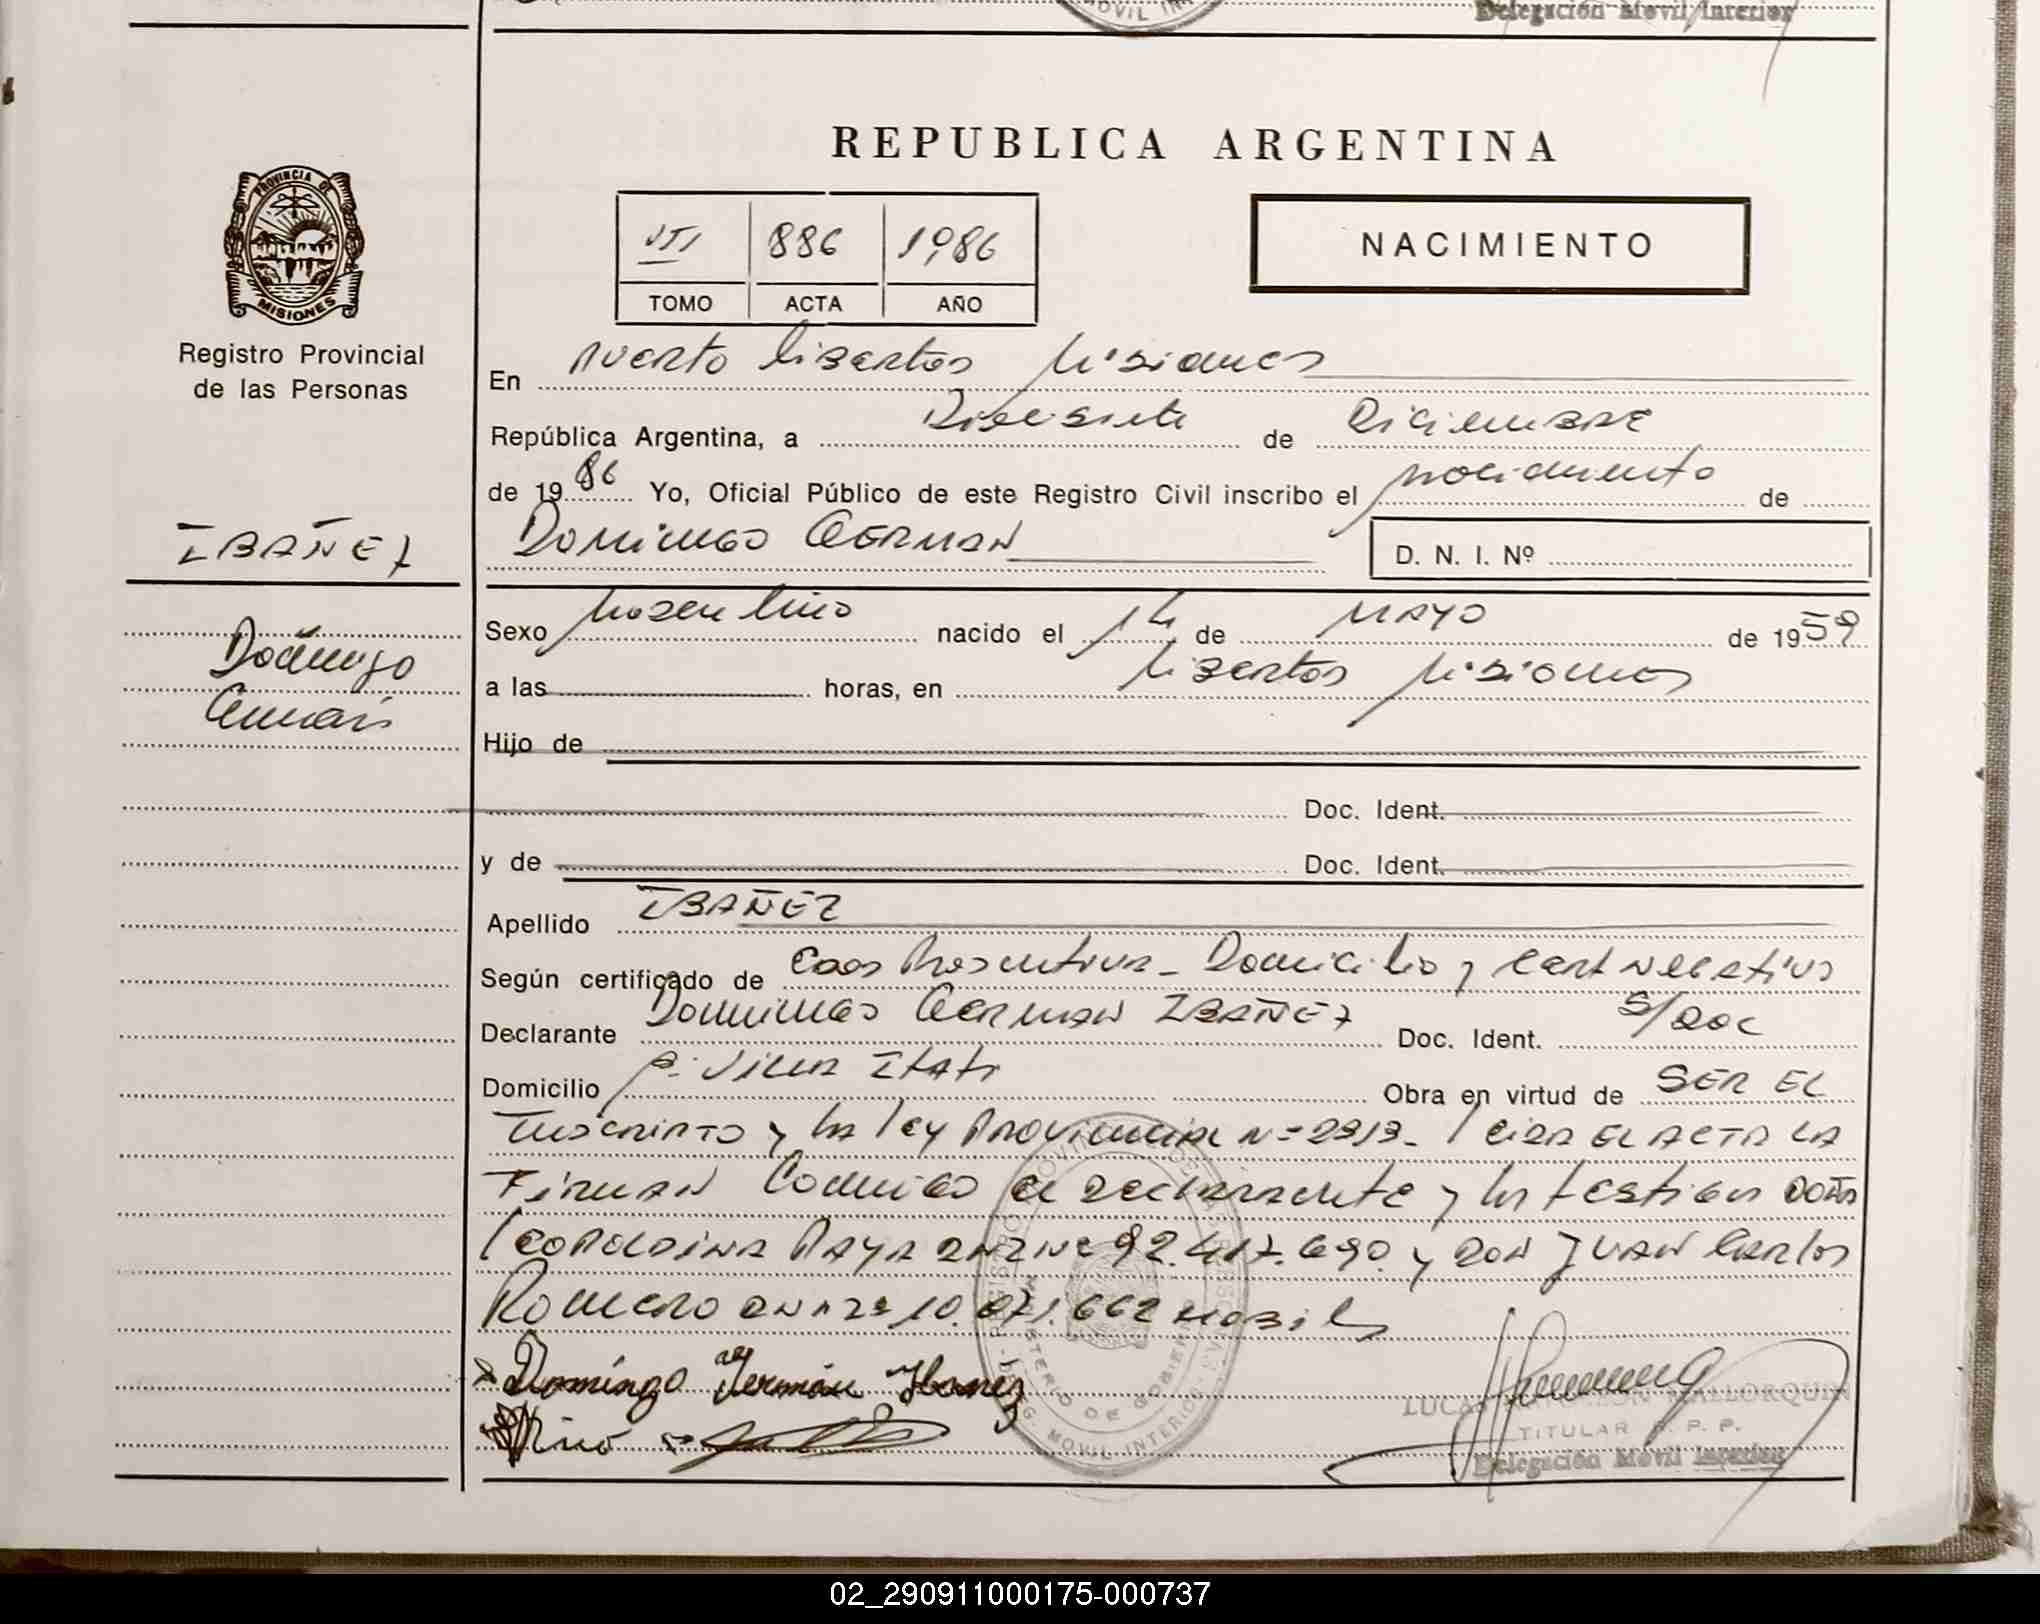 MOVIL IN
Delegación Movil Interior
REPUBLICA ARGENTINA
PROVINCIA DE
MISIONES
Registro Provincial
de las Personas
VII 886 1986
TOMO ACTA AÑO
NACIMIENTO
En Puerto Libertad Misiones
República Argentina, a Diecisiete de Diciembre
de 1986 Yo, Oficial Público de este Registro Civil inscribo el nacimiento de
IBAÑEZ
Domingo German
D. N. I. Nº
Domingo
German
Sexo Masculino nacido el 14 de MAYO de 1959
a las horas, en Libertad Misiones
Hijo de
Doc. Ident.
y de Doc. Ident.
Apellido IBAÑEZ
Según certificado de Edad Presuntiva - Domicilio y Cert Negativo
Declarante Domingo German IBAÑEZ Doc. Ident. S/Doc
Domicilio Villa Itati Obra en virtud de SER EL
Inscripto y la ley Provincial Nº 2313. Leida EL ACTA LA
Firman Conmigo el declarante y los testigos Doña
Leopoldina Raya DNI Nº 92.417.690 y Don Juan Carlos
Romero DNI Nº 10.071.662 habil
Domingo German Ibañez
LUCAS MALLORQUIN
TITULAR R. P. P.
Delegación Móvil Interior
02_290911000175-000737